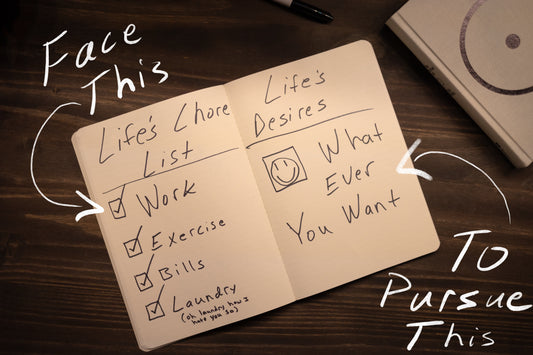 Face
This
Life's Chore
List
Work
Exercise
Bills
Laundry
(oh laundry how I
hate you so)
Life's
Desires
What
Ever
You Want
To
Pursue
This